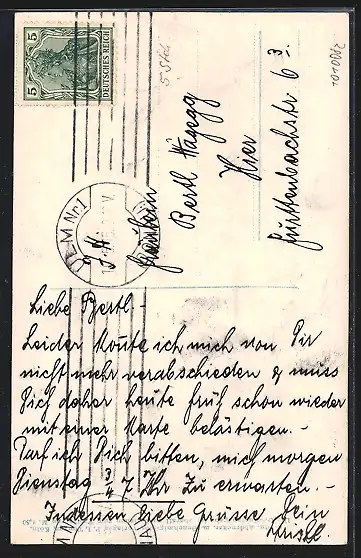 5
DEUTSCHES REICH
5
Fräulein
Bertl
Hier
Fürttenbachstr 6 3.
Liebe Bertl –
Leider konnte ich mich von Dir
nicht mehr verabschieden & muss
Dich daher heute früh schon wieder
mit einer Karte belästigen. –
Darf ich Dich bitten, mich morgen
Dienstag 3/4 7 Uhr zu erwarten. –
Indessen liebe Grüsse Dein